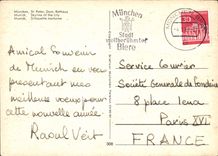 München, St. Peter, Dom, Rathaus
Munich, Skyline of the city
Munich, Silhouette nocturne
München
Stadt
weltberühmter
Biere
30
Amical Souvenir
de Munich en vous
présentant mes
meilleurs voeux pour
cette nouvelle année
Raoul Vért
Service Courier
Société Générale de Fonderie
8 place Iena
Paris XVI
FRANCE